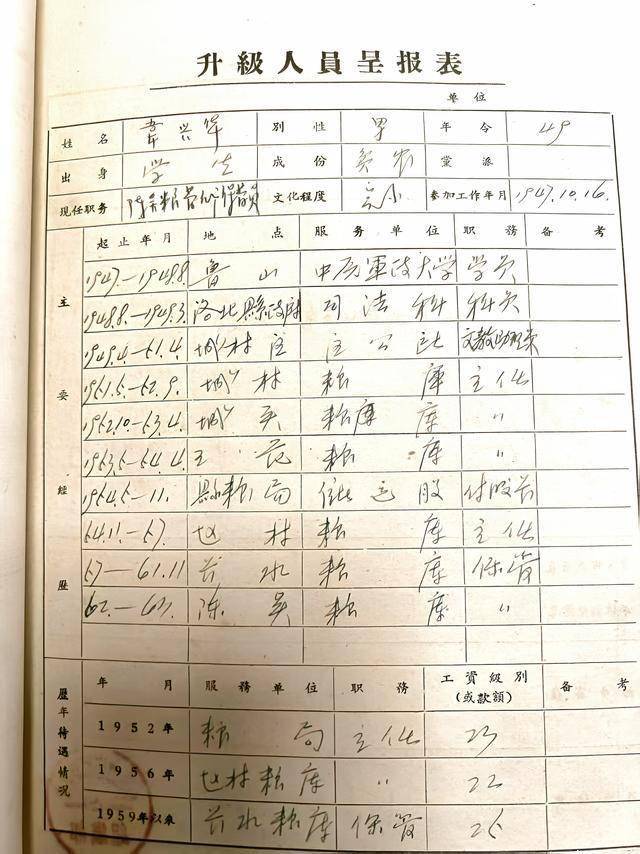 升級人員呈报表
單位
姓名 韋兴华 别性 男 年令 49
出身 学生 成份 贫农 黨派
現任职务 陈吴粮管所保管員 文化程度 高小 参加工作年月 1947.10.16.
主要經歷
起止年月 地点 服务單位 职務 备考
1947.—1948.8. 鲁山 中原軍政大学 学员
1948.8.—1949.3. 洛北縣政府 司法科 科员
1949.4.—51.4. 城村区 区公社 文教助理员
1951.5.—52.9. 城村 粮庫 主任
1952.10.—53.4. 粮庫 〃
1953.5—54.4. 粮庫 〃
1954.5—11. 縣粮局 股 付股长
54.11.—57. 赵村 粮庫 主任
57—61.11 长水 粮庫 保管
62.—63. 陈吴 粮庫 〃
歷年待遇情况
年月 服務單位 职務 工資級别(或款額) 备考
1952年 粮局 主任 23
1956年 赵村粮庫 〃 22
1959年以來 长水粮庫 保管 26